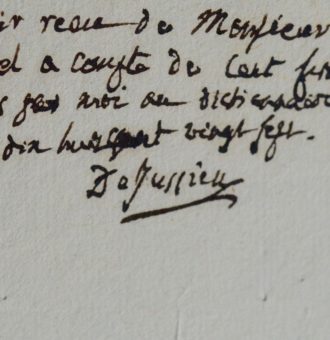 ir recu de Monsieur
el a compte de cent fr
moi au dictionnaire
dix huit vingt sept.
De Jussieu